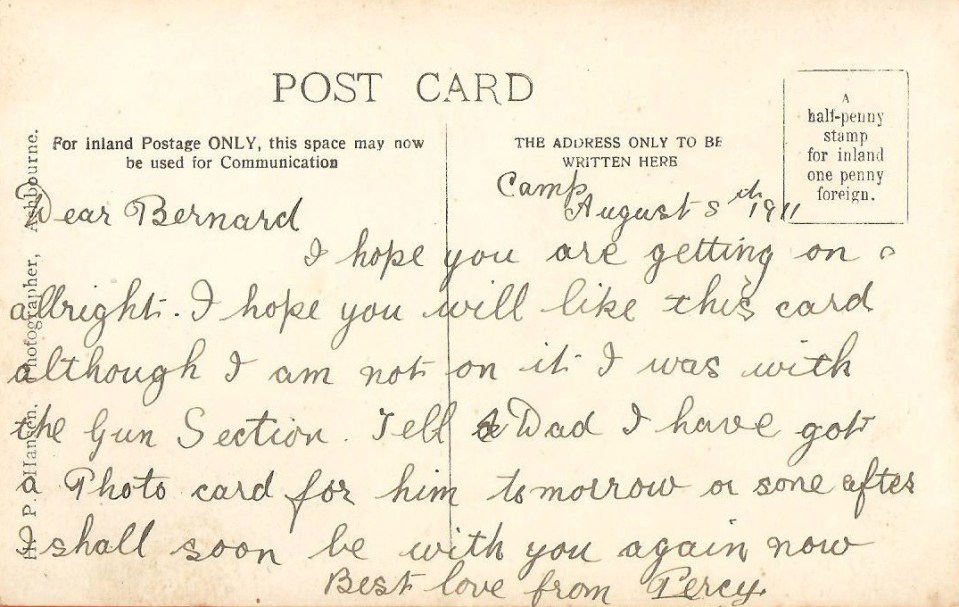 POST CARD
For inland Postage ONLY, this space may now
be used for Communication
THE ADDRESS ONLY TO BE
WRITTEN HERE
A
half-penny
stamp
for inland
one penny
foreign.
H. P. Hansen, Photographer, Ashbourne.
Camp
August 5th 1911
Dear Bernard
I hope you are getting on
allright. I hope you will like this card
although I am not on it I was with
the Gun Section. Tell Dad I have got
a Photo card for him tomorrow or sone after
I shall soon be with you again now
Best love from Percy.